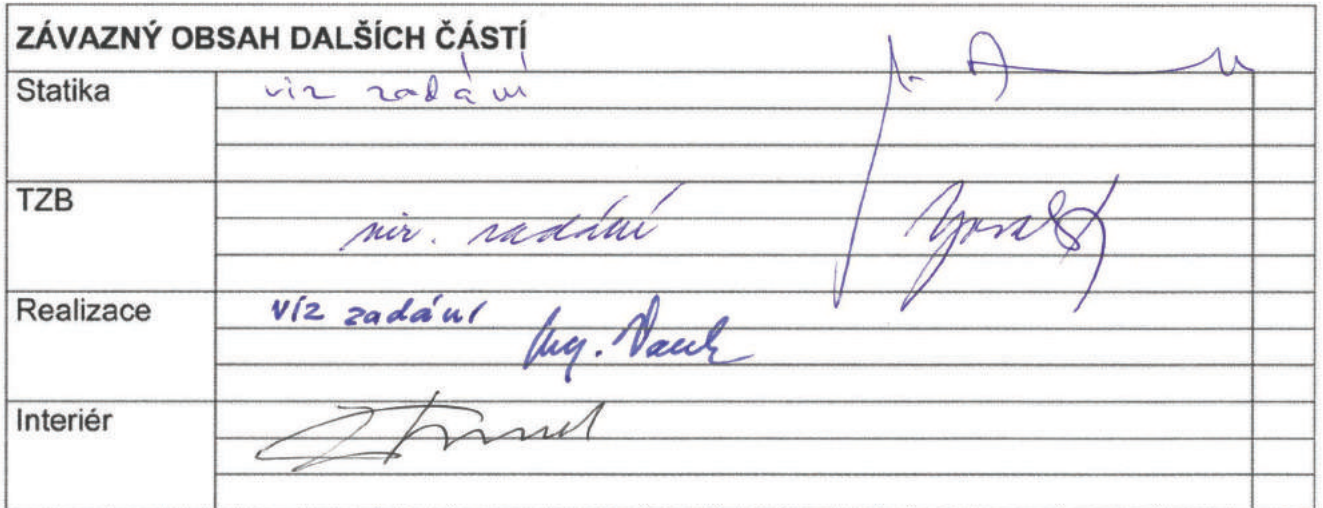 ZÁVAZNÝ OBSAH DALŠÍCH ČÁSTÍ
Statika
viz zadání
TZB
viz. zadání
Realizace
viz zadání
Ing.
Interiér